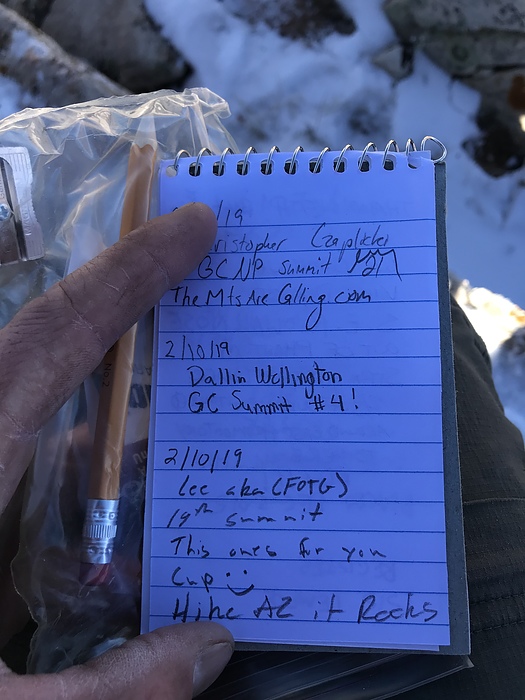 /19
ristopher Czaplicki
GCNP Summit
TheMtsAreCalling.com
2/10/19
Dallin Wellington
GC Summit #4!
2/10/19
Lee aka (FOTG)
19th summit
This ones for you
Cup :)
Hike AZ it Rocks
No. 2